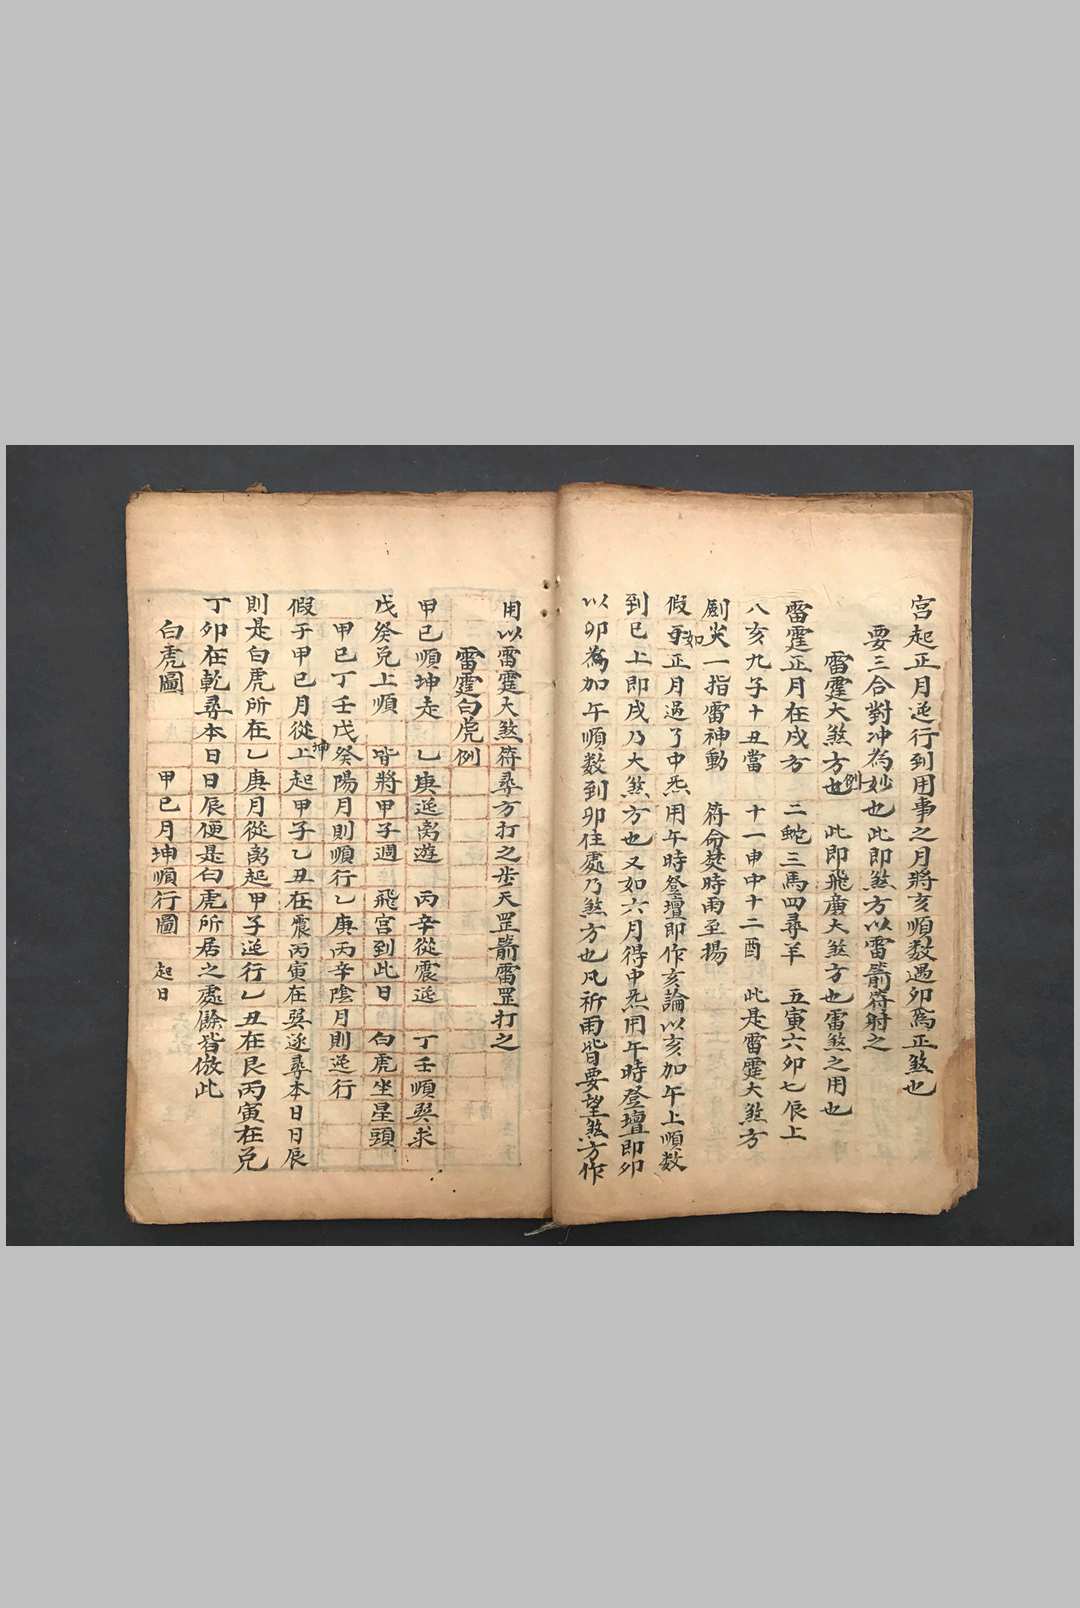 宮起正月逆行到用事之月將亥順数遇卯為正煞也
要三合對冲為妙也此即煞方以雷箭符射之
雷霆大煞方也例 此即飛廣大煞方也雷煞之用也
雷霆正月在戍方 二蛇三馬四尋羊 五寅六卯七辰上
八亥九子十丑當 十一申中十二酉 此是雷霆大煞方
劍尖一指雷神動 符命焚時雨至揚
假如正月過了中炁用午時登壇即作亥論以亥加午上順数
到巳上即戌乃大煞方也又如六月得中炁用午時登壇即卯
以卯為加午順数到卯住處乃煞方也凡祈雨皆要望煞方作
用以雷霆大煞符尋方打之步天罡箭雷罡打之
雷霆白虎例
甲己順坤走 乙庚逆离遊 丙辛從震逆 丁壬順巽求
戊癸兌上順 皆將甲子週 飛宮到此日 白虎坐星頭
甲己丁壬戊癸陽月則順行乙庚丙辛陰月則逆行
假于甲己月從坤上起甲子乙丑在震丙寅在巽逐尋本日日辰
則是白虎所在乙庚月從离起甲子逆行乙丑在艮丙寅在兌
丁卯在乾尋本日日辰便是白虎所居之處餘皆倣此
白虎圖 甲己月坤順行圖 起日